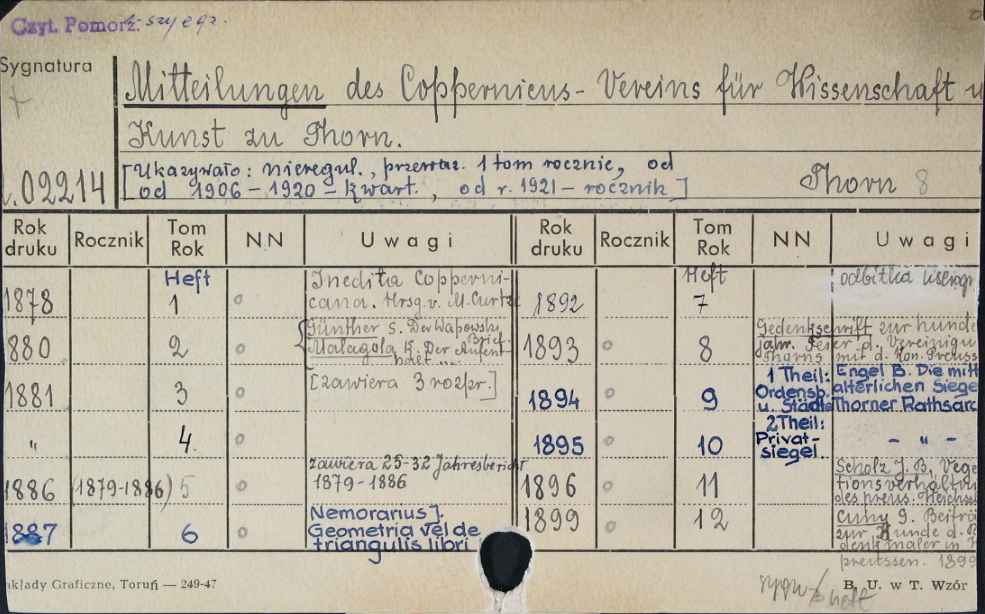 Czyt. Pomorz.
Sygnatura
Mitteilungen des Coppernicus-Vereins für Wissenschaft u
Kunst zu Thorn.
02214
[Ukazywało: nieregul., przeważ. 1 tom rocznie, od
od 1906-1920-kwart., od r. 1921-rocznik]
Thorn 8
Rok druku Rocznik Tom Rok NN Uwagi Rok druku Rocznik Tom Rok NN Uwagi
Heft Inedita Copperni- Heft odbitka
1878 1 o cana. Hrsg. v. M. Curtze 1892 o 7
Günther S. Der Wapowski Gedenkschrift zur hunde
880 2 o Brief. 1893 o 8 jähr. Feier d. Vereinigu
Malagola K. Der Aufent- Thorns mit d. Kön. Preuss
halt ...
1881 3 o [zawiera 3 rozpr.] 1894 o 9 1 Theil: Engel B. Die mitt
Ordensb. alterlichen Siege
u. Städte Thorner Rathsarc
" 4. o 1895 o 10 2 Theil: - " -
Privat-
siegel
zawiera 25-32 Jahresbericht Scholz J. B. Vege
1886 (1879-1886) 5 o 1879-1886 1896 o 11 tionsverhältni
des preus. Weichsel
1887 6 o Nemorarius J. 1899 o 12 Cuny G. Beiträ
Geometria vel de zur Kunde d. B
triangulis libri denkmäler in
preussen. 1899
akłady Graficzne, Toruń — 249-47
B. U. w T. Wzór
heft